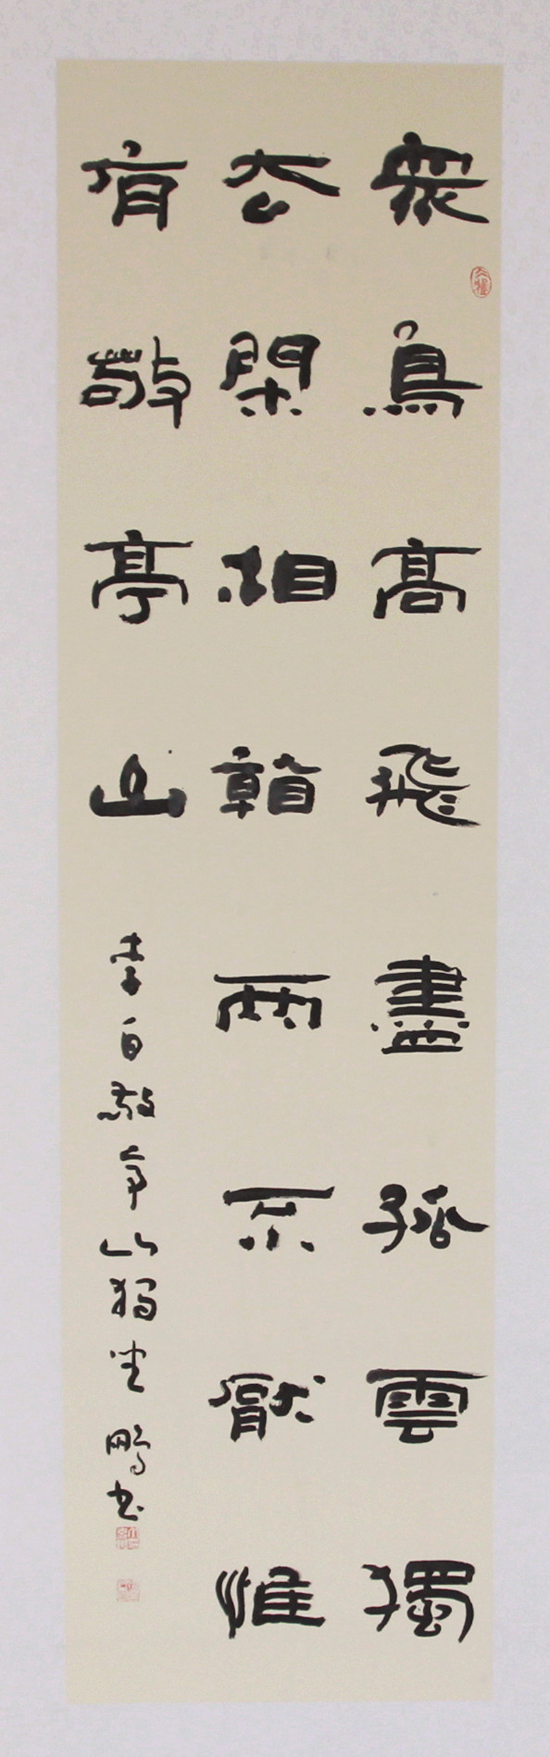 眾鳥高飛盡孤雲獨
去閑相看兩不厭惟
有敬亭山
李白敬亭山獨坐 鵬書